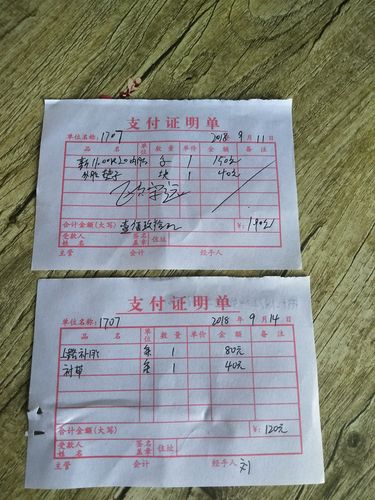 支付证明单
单位名称: 1707 2018年9月11日
品名 单位 数量 单价 金额 备注
新11.00R20内胎 条 1 150元
块 1 40元
合计金额(大写) 壹佰玖拾元 ¥: 190元
受款人姓名 签名盖章 住址
主管 会计 经手人
支付证明单
单位名称: 1707 2018年9月14日
品名 单位 数量 单价 金额 备注
补胎 条 1 80元
衬草 条 1 40元
合计金额(大写) ¥: 120元
受款人姓名 签名盖章 住址
主管 会计 经手人 刘